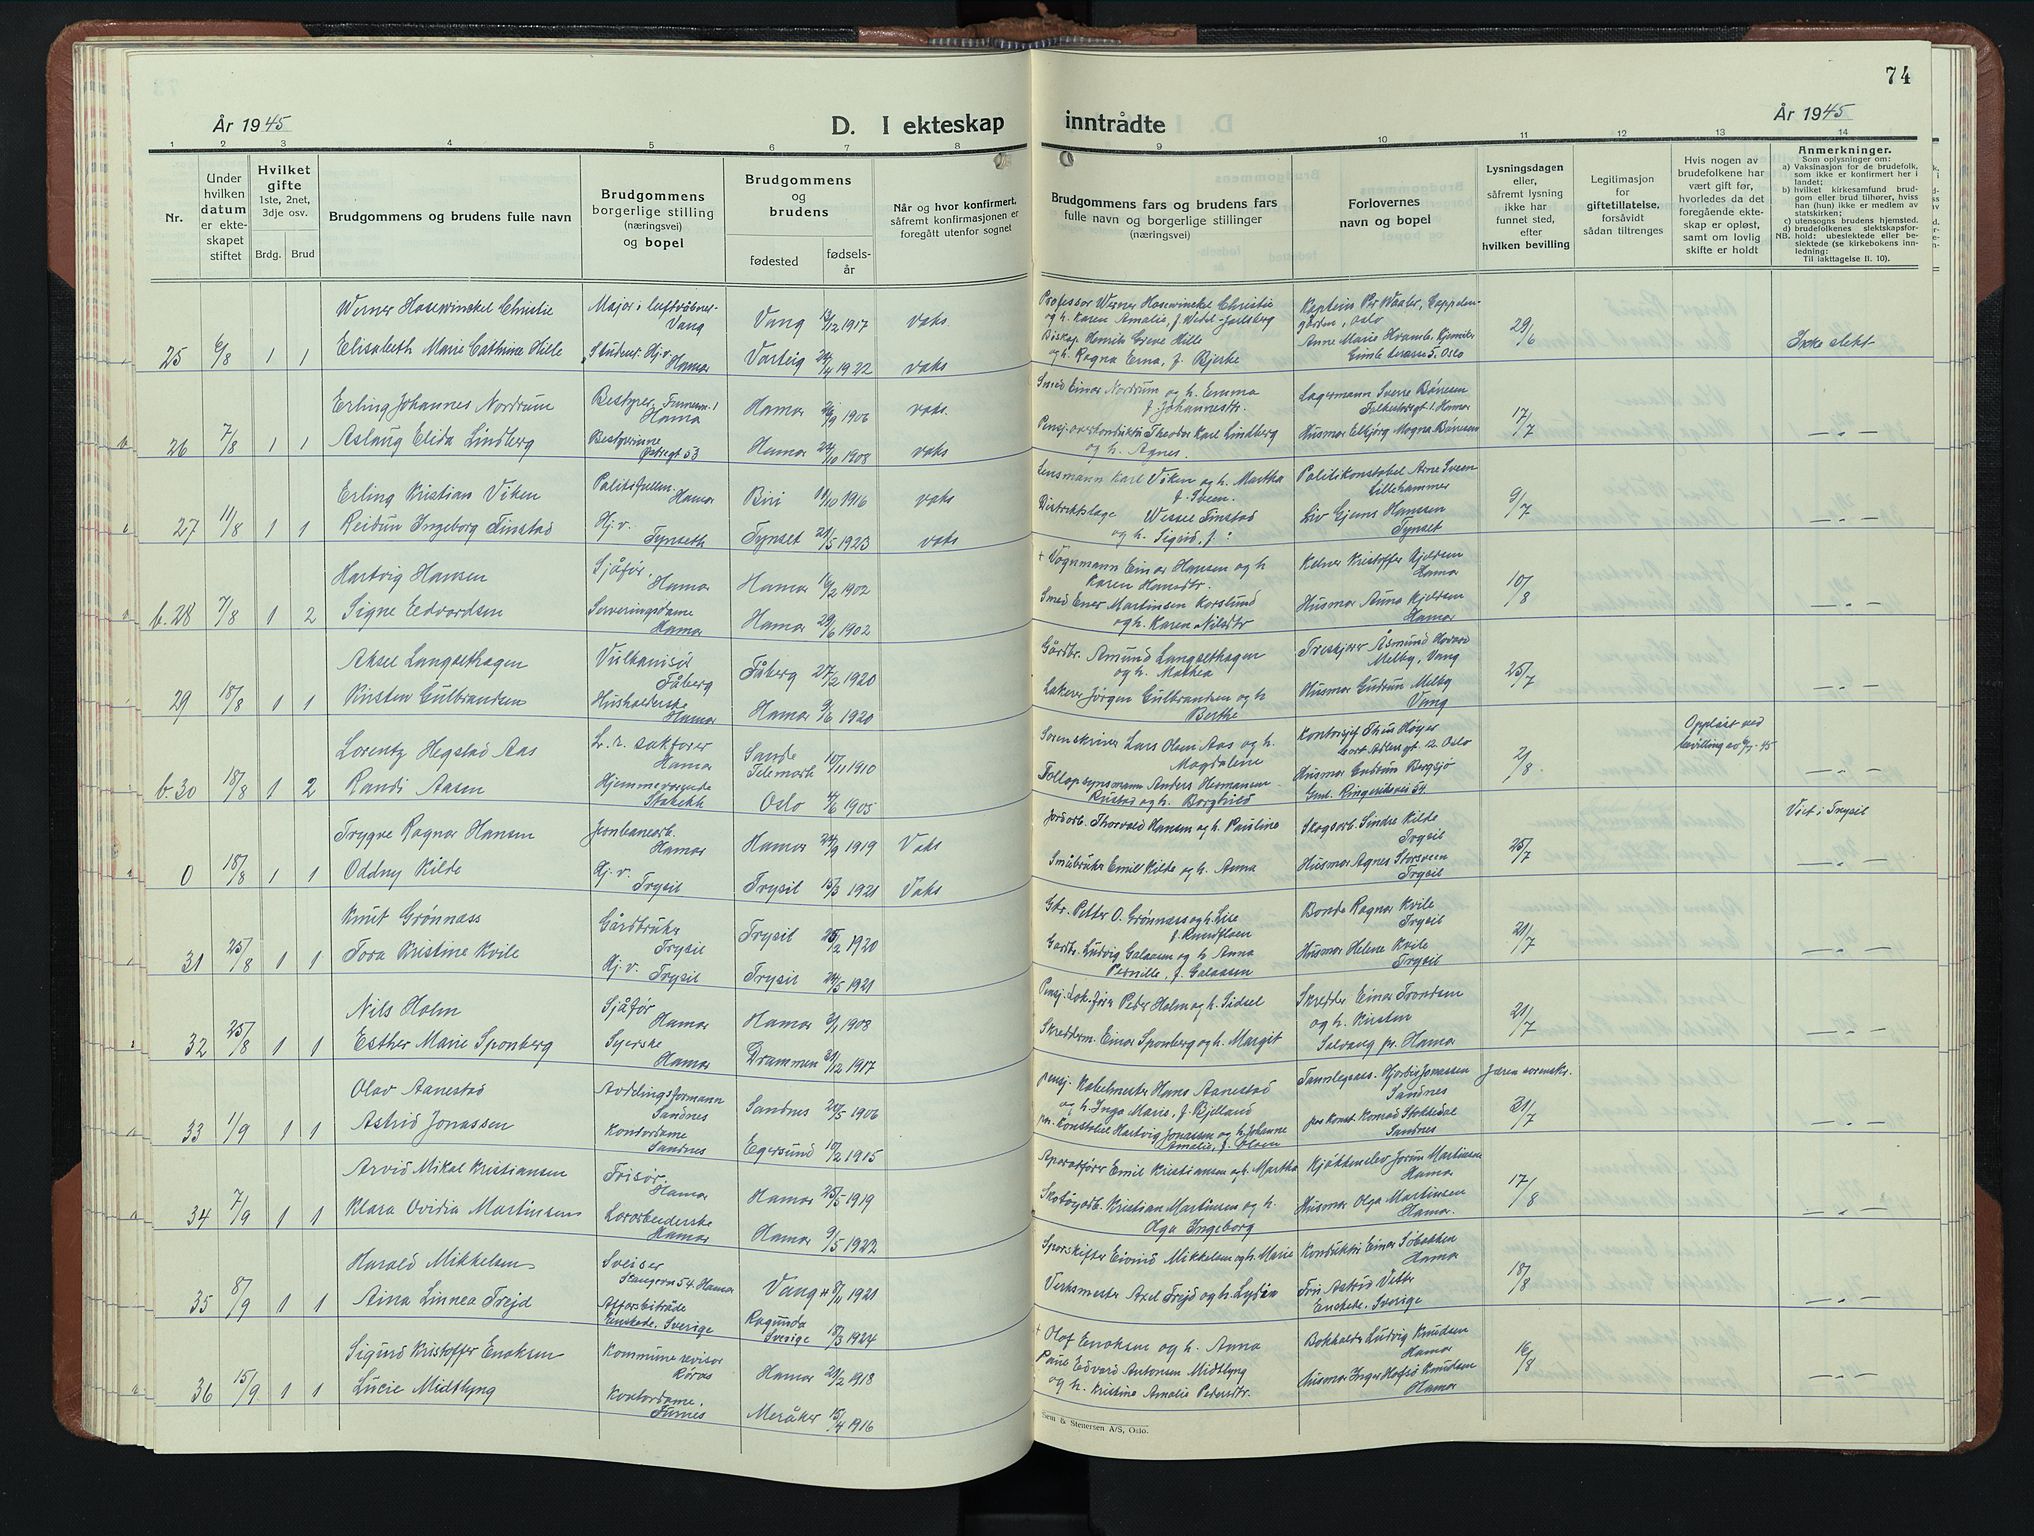 74
År 1945
D. I ekteskap
inntrådte
År 1945
1 2 3 4 5 6 7 8 9 10 11 12 13 14
Nr.
Under
hvilken
datum
er ekte-
skapet
stiftet
Hvilket
gifte
1ste, 2net,
3dje osv.
Brdg. Brud
Brudgommens og brudens fulle navn
Brudgommens
borgerlige stilling
(næringsvei)
og bopel
Brudgommens
og
brudens
fødested
fødsels-
år
Når og hvor konfirmert.
såfremt konfirmasjonen er
foregått utenfor sognet
Brudgommens fars og brudens fars
fulle navn og borgerlige stillinger
(næringsvei)
Forlovernes
navn og bopel
Lysningsdagen
eller,
såfremt lysning
ikke har
funnet sted,
efter
hvilken bevilling
Legitimasjon
for
giftetillatelse.
forsåvidt
sådan tiltrenges
Hvis nogen av
brudefolkene har
vært gift før,
hvorledes da det
foregående ekte-
skap er opløst,
samt om lovlig
skifte er holdt
Anmerkninger.
Som oplysninger om:
a) Vaksinasjon for de brudefolk,
som ikke er konfirmert her i
landet;
b) hvilket kirkesamfund brud-
gom eller brud tilhører, hviss
han (hun) ikke er medlem av
statskirken;
c) utensogns brudens hjemsted.
d) brudefolkenes slektskapsfor-
NB. hold: ubeslektede eller be-
slektede (se kirkebokens inn-
ledning:
Til iakttagelse II. 10).
Werner Hosewinckel Christie
Major i luftvåbnet
Vang
Vang 13/12 1917 vaks
Professor Werner Hosewinckel Christie
og h. Karen Amalie, f. Wedel-Jarlsberg
Kaptein Per Waaler, Cappelen-
gården, Oslo
25 6/8 1 1 Elisabeth Marie Cathrine Hille
Student Hj.v.
Hamar
Varteig 24/4 1922 vaks
Biskop Henrik Greve Hille
og h. Ragna Erna, f. Bjerke
Anne Marie Hvamb, Kjemiker
Gimle terasse 5, Oslo
29/6
Ikke slekt
Erling Johannes Nordrum
Bestyrer
Hamar
Hamar 26/9 1906 vaks
Smed Einar Nordrum og h. Emma
f. Johannesdtr.
Lagermann Sverre Bønesen
Folkestadgt 1. Hamar
26 7/8 1 1 Aslaug Elida Lindberg
Bestyrerinne
Østregt 53
Hamar 24/10 1908 vaks
Pensj. overkonduktør Theodor Karl Lindberg
og h. Agnes.
Husmor Elbjørg Magna Bønesen
17/7
Erling Kristian Viken
Politifullm.
Hamar
Biri 11/10 1916 vaks
Lensmann Karl Viken og h. Martha
f. Sveen.
Politikonstabel Arne Sveen
Lillehammer
27 11/8 1 1 Reidun Ingeborg Finstad
Hj.v.
Tynseth
Tynset 21/5 1923 vaks
Distriktslege Wessel Finstad
og h. Sigrid, f:
Liv Gjems Hanssen
Tynset
9/7
Hartvig Hansen
Sjåfør.
Hamar
Hamar 16/2 1902
+ Vognmann Einar Hansen og h
Karen Hansdtr.
Kelner Kristoffer Kjeldsen
Hamar
b.28 7/8 1 2 Signe Edvardsen
Serveringsdame
Hamar
Hamar 29/6 1902
Smed Ener Martinsen Korslund
og h. Karen Nilsdtr
Husmor Anna Kjeldsen
Hamar
10/8
Aksel Langsethagen
Vulkanisør
Fåberg
Fåberg 27/2 1920
Gårdbr. Amund Langsethagen
og h. Mathea
Treskjærer Åsmund
Melby, Vang
29 18/8 1 1 Kirsten Gulbrandsen
Husholderske
Hamar
Hamar 9/6 1920
Lakerer Jørgen Gulbrandsen og h
Berthe
Husmor Gudrun Melby
Vang
25/7
Lorentz Hegstad Aas
L.r. sakfører
Hamar
Sande
Telemark
10/11 1910
Sorenskriver Lars Olsen Aas og h.
Magdalene
Kontorsjef Thus Høyer
Cort Adlers gt. 12. Oslo
Oppløst ved
bevilling av 6/7-45
b.30 18/8 1 2 Randi Aasen
Hjemmeværende
Stabekk
Oslo 4/6 1905
Tolloppsynsmann Anders Hermansen
Rustad og h. Borghild
Husmor Gudrun Bergsjø
Gml. Ringeriksvei 54
2/8
Trygve Ragnar Hansen
Jernbanearb.
Hamar
Hamar 24/9 1919 Vaks
Jordarb. Thorvald Hansen og h. Pauline
Skogsarb. Sindre Kilde
Trysil
Viet i Trysil
0 18/8 1 1 Oddny Kilde
Hj. v.
Trysil
Trysil 15/3 1921 Vaks
Småbruker Emil Kilde og h. Anna
Husmor Agnes Storsveen
Trysil
25/7
Knut Grønnæss
Gårdbruker
Trysil
Trysil 25/2 1920
Gbr. Petter O. Grønnæss og h. Lise
f. Knudsflaen
Bonde Ragnar Kvile
Trysil
31 25/8 1 1 Tora Kristine Kvile
Hj. v. Trysil
Trysil 24/5 1921
Gardbr. Ludvig Galaasen og h. Anna
Pernille, f. Galaasen
Husmor Helene Kvile
Trysil
21/7
Nils Holm
Sjåfør
Hamar
Hamar 3/1 1908
Pensj. Lok.fører Peder Holm og h. Sidsel
Skredder Einar Trondsen
og h. Kirsten
32 25/8 1 1 Esther Marie Sponberg
Syerske
Hamar
Drammen 31/12 1917
Skredderm. Einar Sponberg og h. Margit
Solvang pr. Hamar
21/7
Olav Aanestad
Avdelingsformann
Sandnes
Sandnes 20/5 1906
pensj. Kabelmester Hans Aanestad
og h. Inga Marie, f. Bjelland
Tannlegeass. Hjørdis Jonassen
Sandnes
Jæren sorenskr.
33 1/9 1 1 Astrid Jonassen
Kontordame
Sandnes
Egersund 10/2 1915
pr. Konstabel Hartvig Jonassen og h. Johanne
Amalie, f. Olsen
pol. konst. Konrad Stokkedal
Sandnes
31/7
Arvid Mikal Kristiansen
Frisør.
Hamar
Hamar 25/5 1919
Emil Kristiansen og h. Martha
Kjøkkenelev Jorun Martinsen
Hamar
34 7/9 1 1 Klara Ovidia Martinsen
Lærarbeiderske
Hamar
Hamar 9/5 1922
Skotøyarb. Kristian Martinsen og h.
Olga Ingeborg
Husmor Olga Martinsen
Hamar.
17/8
Harald Mikkelsen
Sveiser
Stangevn 54 Hamar
Vang + 8/11 1921
Sporskifter Eivind Mikkelsen og h. Marie
Konduktør Einar Søbakken
Hamar
35 8/9 1 1 Aina Linnea Frejd
Affärsbiträde
Enskede. Sverige
Ragunda
Sverige
18/3 1924
Verksmester Axel Frejd og h. Lydia
Frk Astrid Vetter
Enskede. Sverige
18/8
Sigurd Kristoffer Enoksen
Kommune revisor
Røros
Hamar 21/2 1918
+ Olof Enoksen og h. Anna
Bokholder Ludvig Knudsen
Hamar
36 15/9 1 1 Lucie Midtlyng
Kontordame.
Furnes
Meråker 15/4 1916
Edvard Antonsen Midtlyng
og h. Kristine Amalie Pedersdtr.
Husmor Inger Hofsø Knudsen
Hamar
16/8
Sem & Stenersen A/S, Oslo.